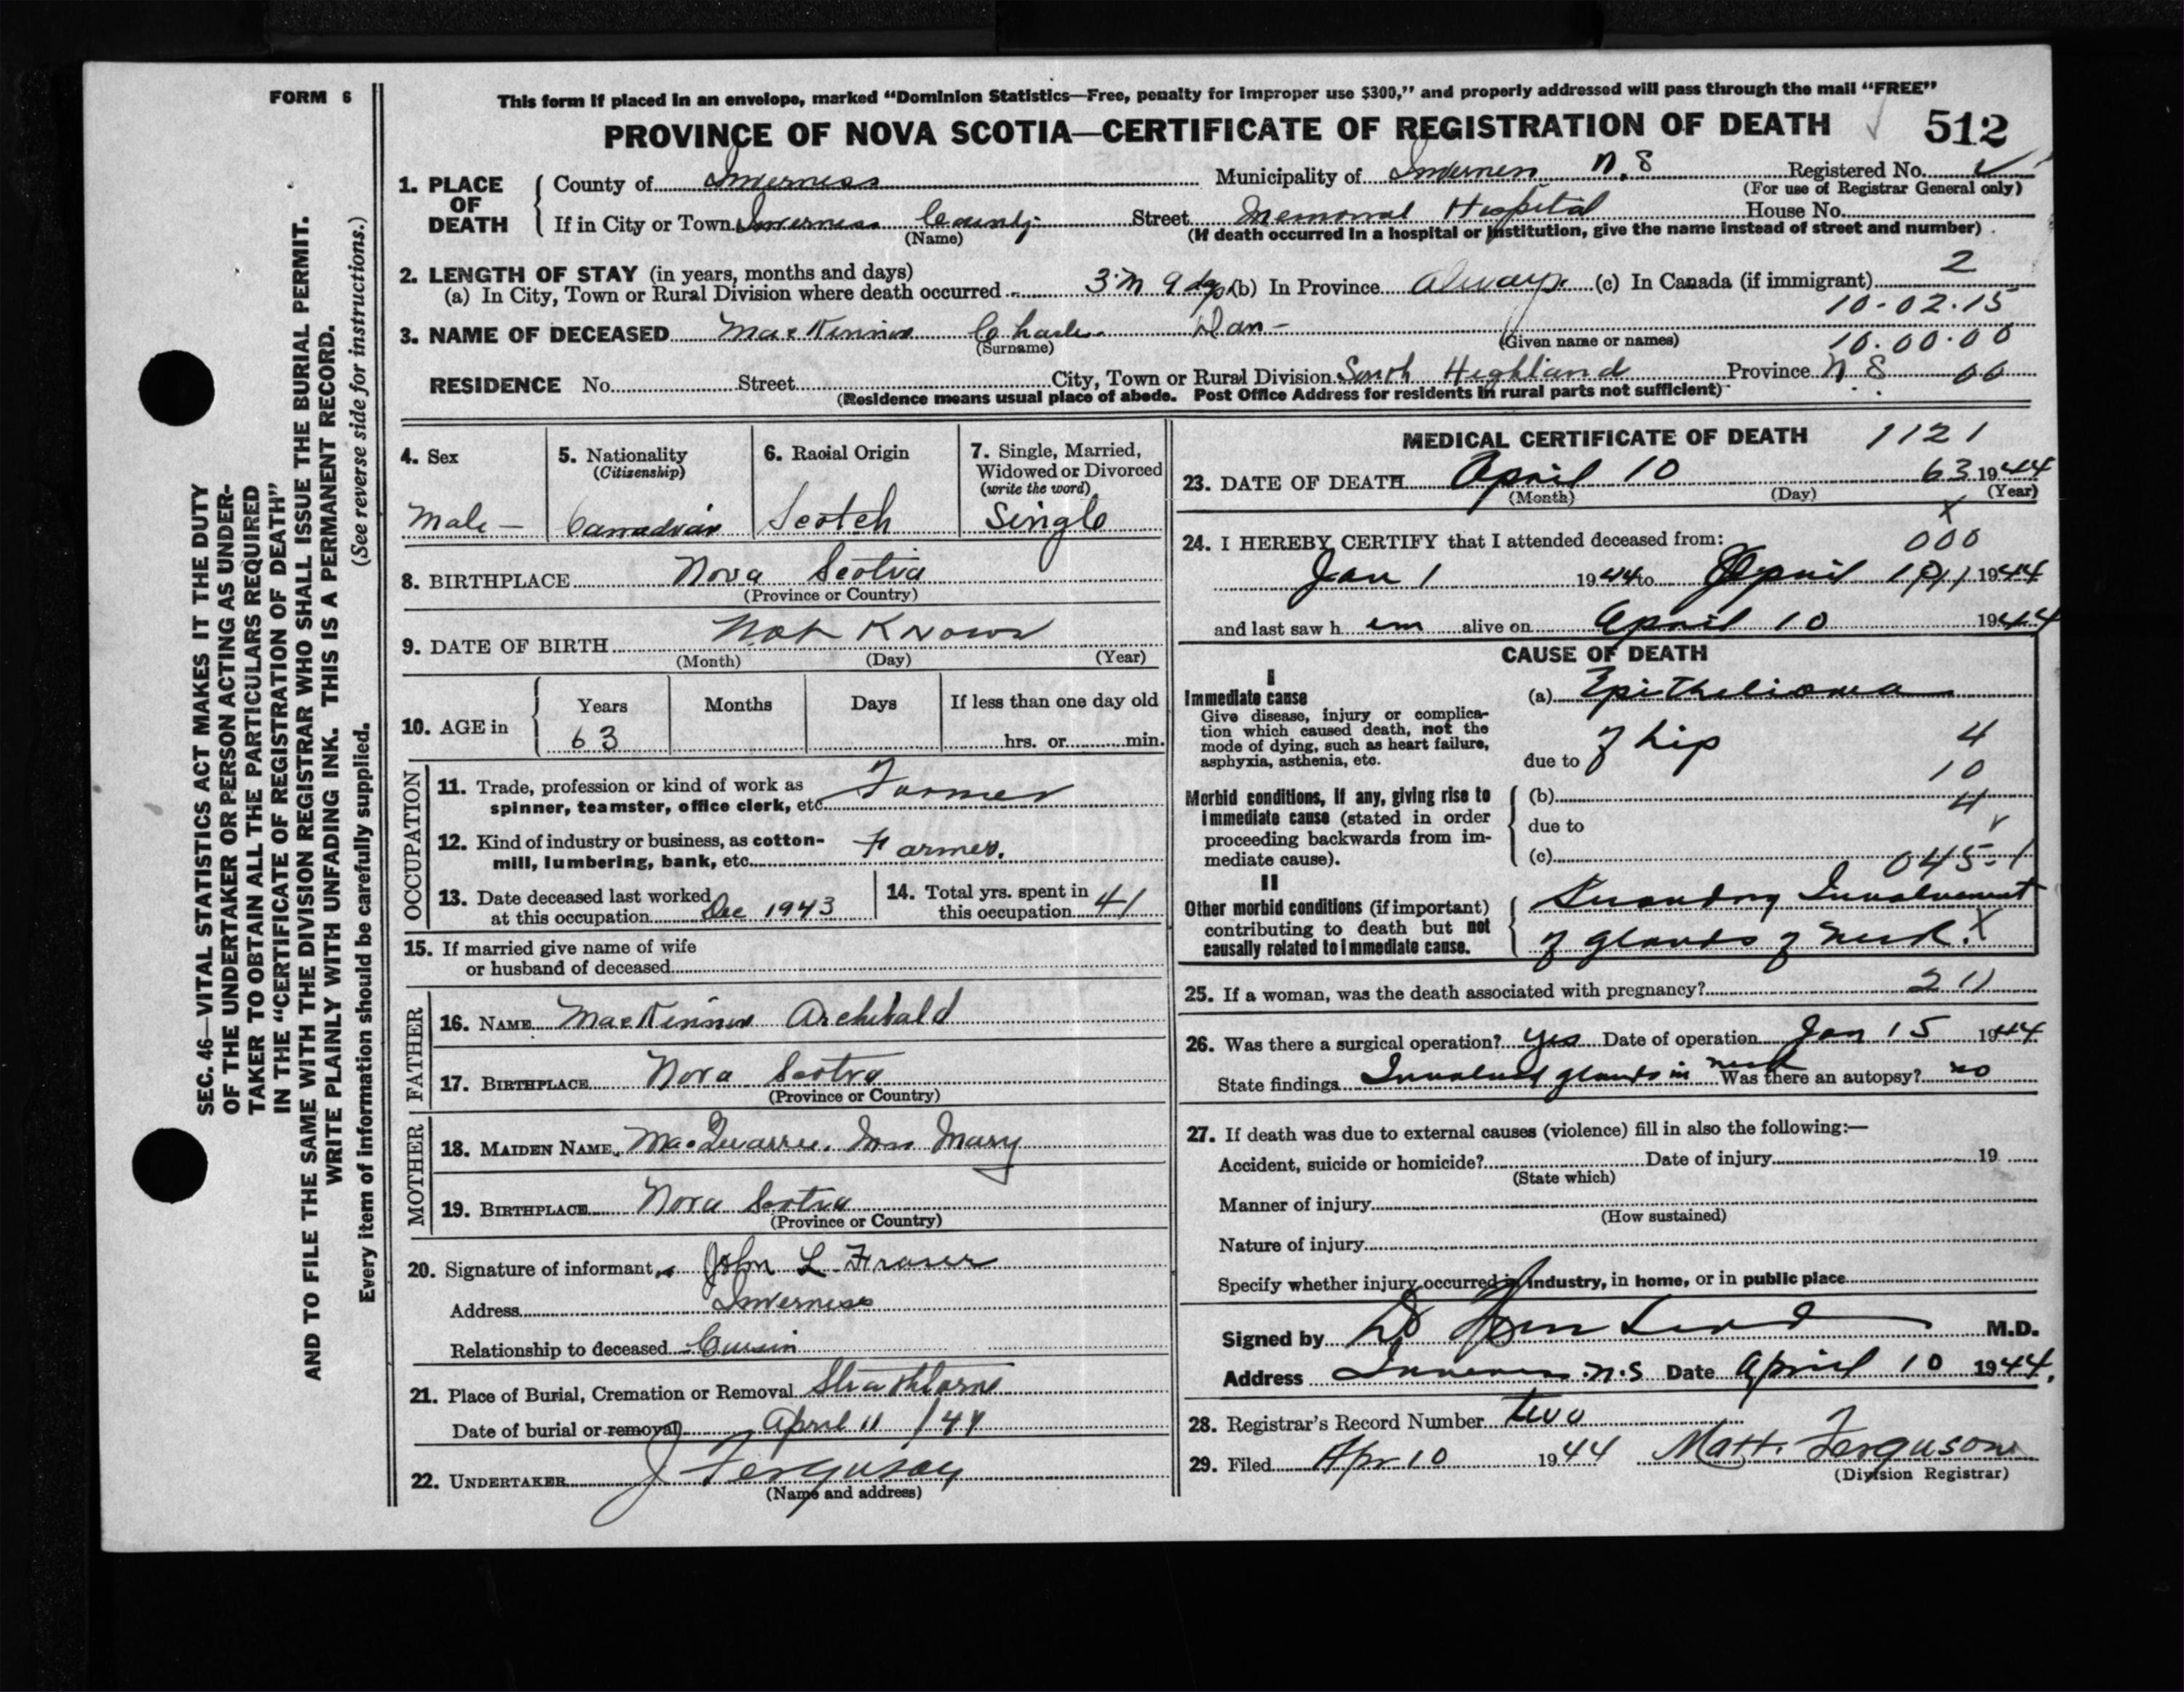 FORM 6
This form if placed in an envelope, marked “Dominion Statistics—Free, penalty for improper use $300,” and properly addressed will pass through the mail “FREE”
PROVINCE OF NOVA SCOTIA—CERTIFICATE OF REGISTRATION OF DEATH 512
1. PLACE OF DEATH
County of Inverness Municipality of Inverness N.S Registered No.
(For use of Registrar General only)
If in City or Town Inverness County Street Memorial Hospital House No.
(Name) (If death occurred in a hospital or institution, give the name instead of street and number)
2. LENGTH OF STAY (in years, months and days) 2
(a) In City, Town or Rural Division where death occurred 3 m 9 dys (b) In Province always (c) In Canada (if immigrant)
10-02-15
3. NAME OF DECEASED MacKinnon Charles Dan -
(Surname) (Given name or names) 10.00.00
RESIDENCE No. Street City, Town or Rural Division South Highland Province N.S 66
(Residence means usual place of abode. Post Office Address for residents in rural parts not sufficient)
4. Sex
Male -
5. Nationality
(Citizenship)
Canadian
6. Racial Origin
Scotch
7. Single, Married,
Widowed or Divorced
(write the word)
Single
8. BIRTHPLACE Nova Scotia
(Province or Country)
9. DATE OF BIRTH Not Known
(Month) (Day) (Year)
10. AGE in Years Months Days If less than one day old
63 hrs. or min.
OCCUPATION
11. Trade, profession or kind of work as
spinner, teamster, office clerk, etc. Farmer
12. Kind of industry or business, as cotton-
mill, lumbering, bank, etc. Farmer.
13. Date deceased last worked
at this occupation Dec 1943
14. Total yrs. spent in
this occupation 41
15. If married give name of wife
or husband of deceased
FATHER
16. NAME MacKinnon Archibald
17. BIRTHPLACE Nova Scotia
(Province or Country)
MOTHER
18. MAIDEN NAME MacQuarrie. Mrs Mary
19. BIRTHPLACE Nova Scotia
(Province or Country)
20. Signature of informant John L Fraser
Address Inverness
Relationship to deceased Cousin
21. Place of Burial, Cremation or Removal Strathlorne
Date of burial or removal April 11 /44
22. UNDERTAKER J Ferguson
(Name and address)
MEDICAL CERTIFICATE OF DEATH 1121
23. DATE OF DEATH April 10 63 1944
(Month) (Day) (Year)
x
24. I HEREBY CERTIFY that I attended deceased from: 000
Jan 1 1944 to April 1944
and last saw h im alive on April 10 1944
CAUSE OF DEATH
I
Immediate cause
Give disease, injury or complica-
tion which caused death, not the
mode of dying, such as heart failure,
asphyxia, asthenia, etc.
(a) Epithelioma
of lip 4
due to
10
Morbid conditions, if any, giving rise to
immediate cause (stated in order
proceeding backwards from im-
mediate cause).
(b) 4
due to
(c) 045-1
II
Other morbid conditions (if important)
contributing to death but not
causally related to immediate cause.
Secondary Involvement
of glands of neck. X
25. If a woman, was the death associated with pregnancy? 211
26. Was there a surgical operation? Yes Date of operation Jan 15 1944
State findings Involved glands in neck Was there an autopsy? no
27. If death was due to external causes (violence) fill in also the following:—
Accident, suicide or homicide? Date of injury 19
(State which)
Manner of injury
(How sustained)
Nature of injury
Specify whether injury occurred in industry, in home, or in public place
Signed by M.D.
Address Inverness N.S Date April 10 1944.
28. Registrar's Record Number two
29. Filed Apr 10 1944 Matt. Ferguson
(Division Registrar)
SEC. 46—VITAL STATISTICS ACT MAKES IT THE DUTY
OF THE UNDERTAKER OR PERSON ACTING AS UNDER-
TAKER TO OBTAIN ALL THE PARTICULARS REQUIRED
IN THE “CERTIFICATE OF REGISTRATION OF DEATH”
AND TO FILE THE SAME WITH THE DIVISION REGISTRAR WHO SHALL ISSUE THE BURIAL PERMIT.
WRITE PLAINLY WITH UNFADING INK. THIS IS A PERMANENT RECORD.
(See reverse side for instructions.)
Every item of information should be carefully supplied.